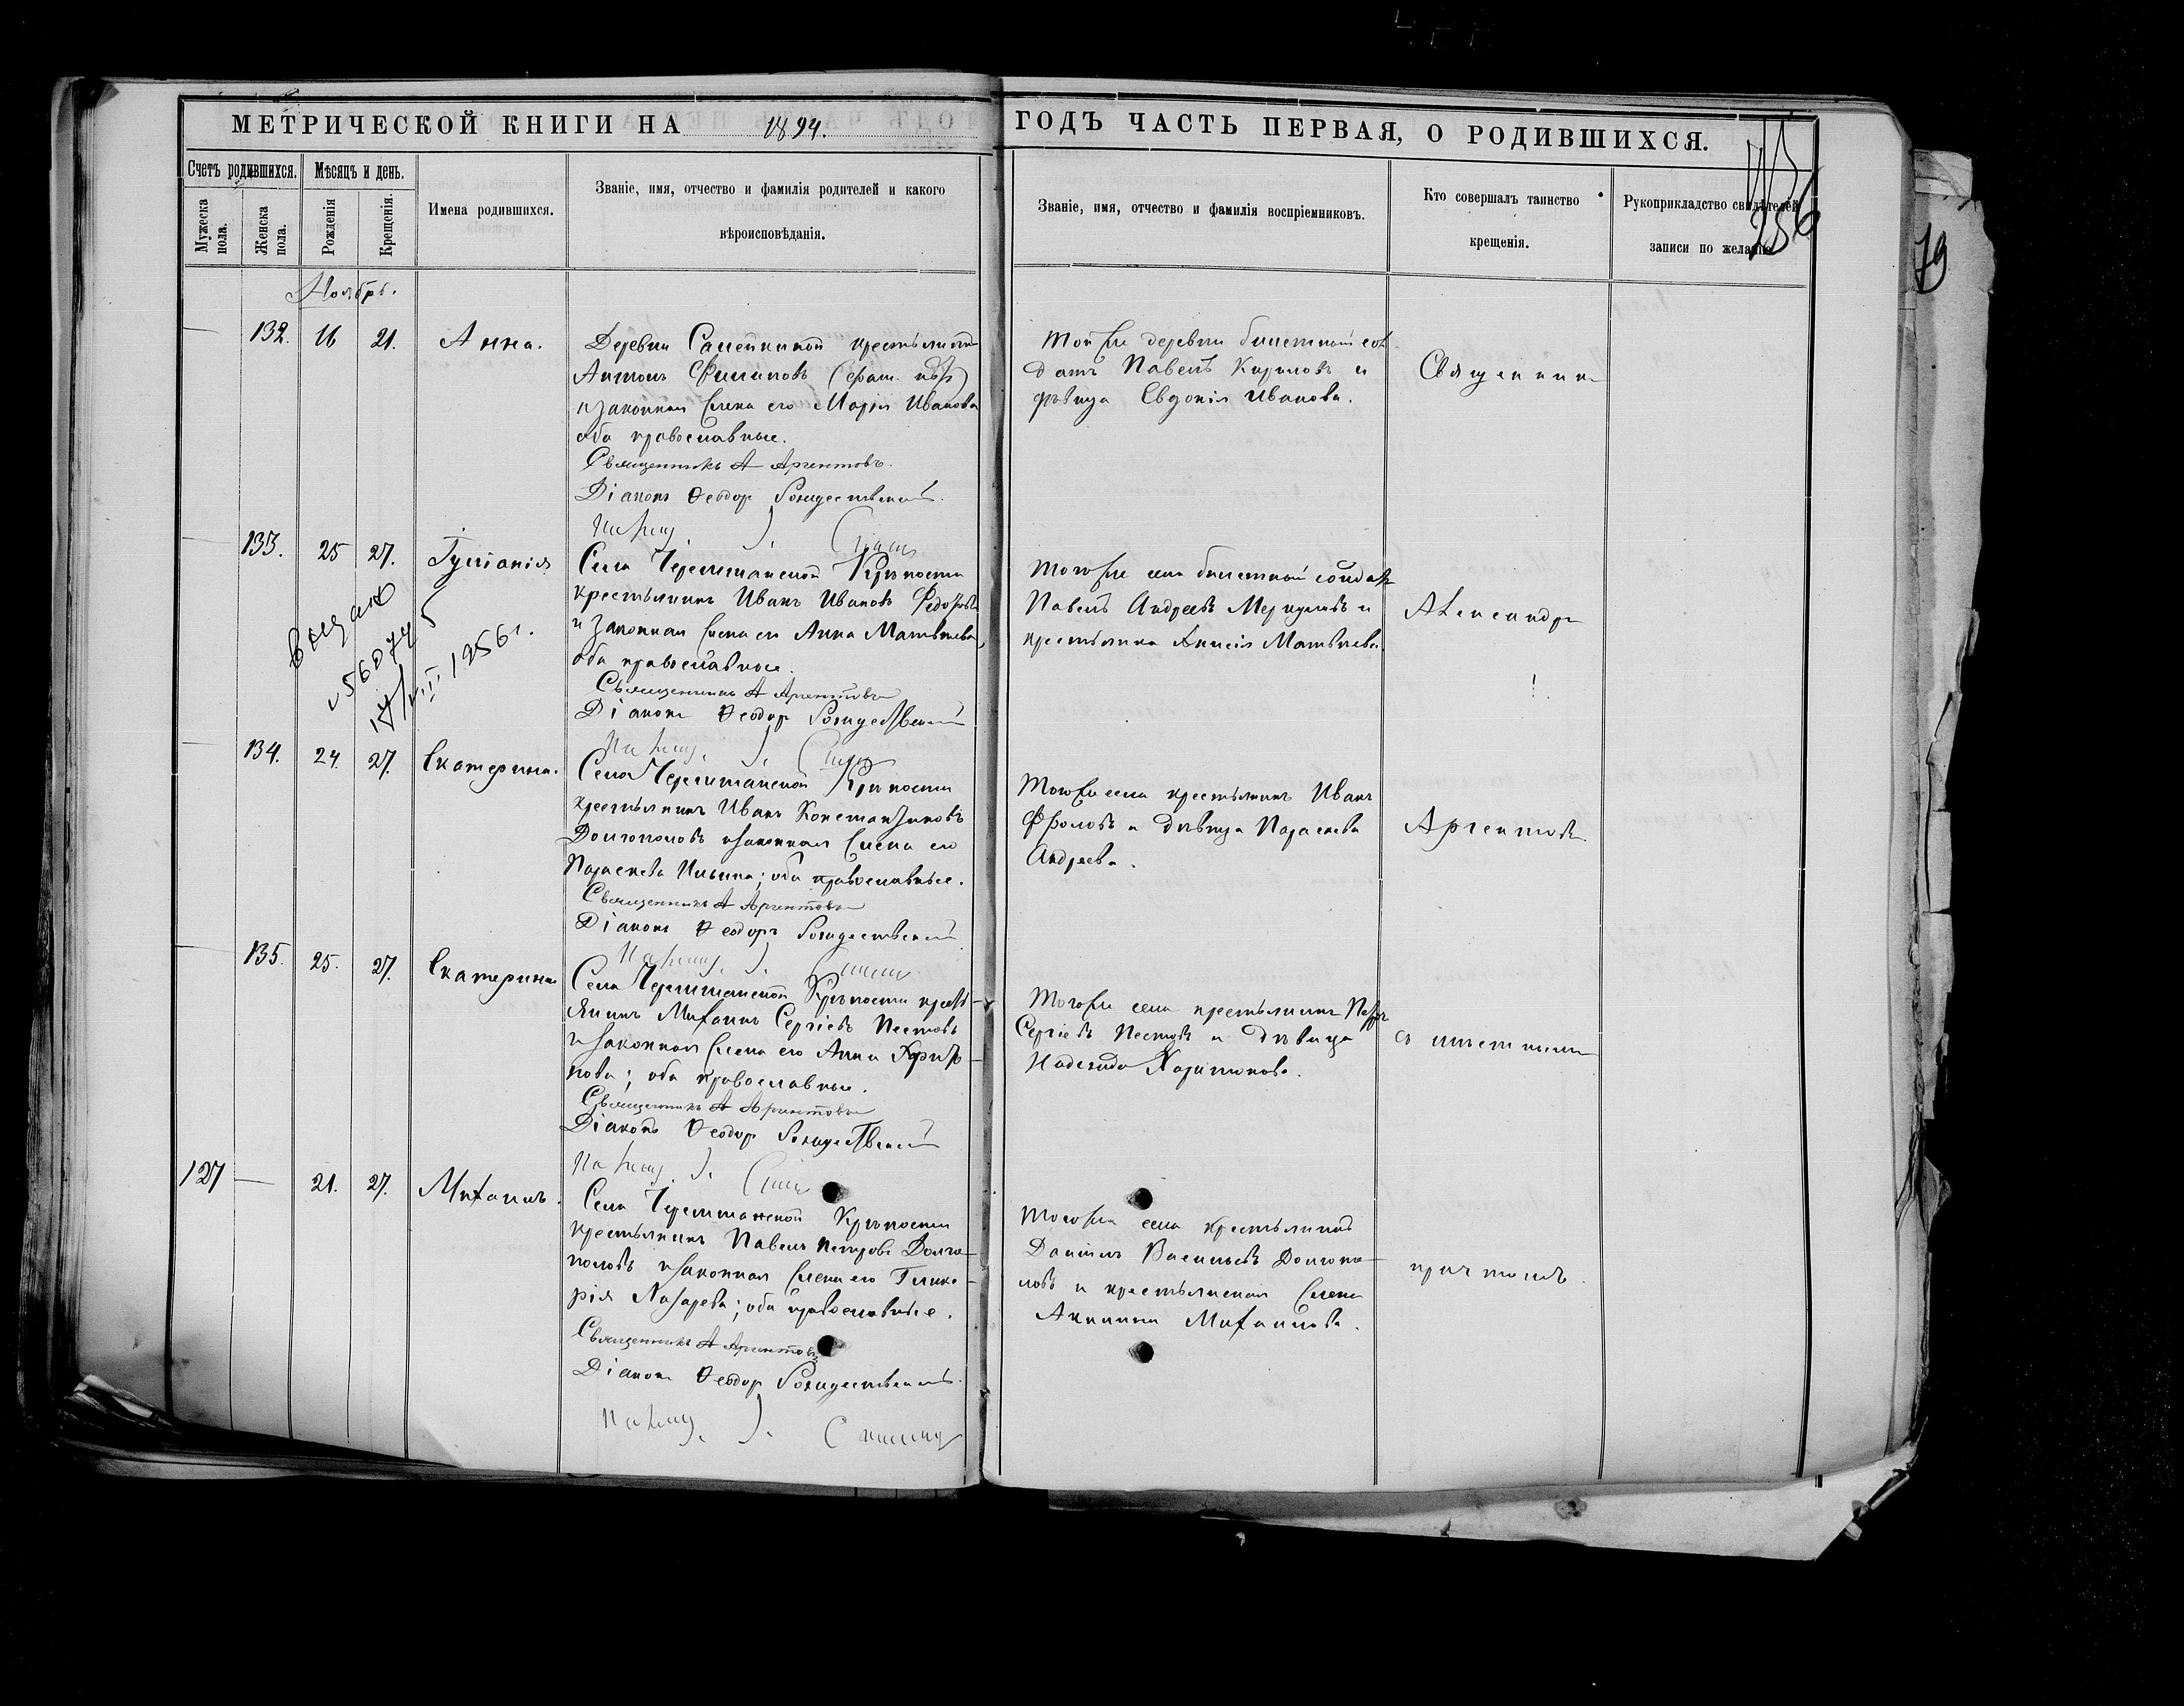 МЕТРИЧЕСКОЙ КНИГИ НА 1894.
ГОДЪ ЧАСТЬ ПЕРВАЯ, О РОДИВШИХСЯ.
Счетъ родившихся.
Мѣсяцъ и день.
Мужеска пола.
Женска пола.
Рожденія
Крещенія.
Имена родившихся.
Званіе, имя, отчество и фамилія родителей и какого
вѣроисповѣданія.
Званіе, имя, отчество и фамилія воспріемниковъ.
Кто совершалъ таинство
крещенія.
Рукоприкладство свидѣтелей
записи по желанію
79
Ноябрь.
132. 16 21. Анна.
Деревни крестьянинъ
Антонъ Филиповъ
и законная жена его Марія Иванова
оба православные.
Священникъ А Аргентовъ.
Діаконъ Ѳеодоръ Рождественскій.
Той же деревни билетный сол
датъ Павелъ Кириловъ и
дѣвица Евдокія Иванова.
Священник
133. 25 27. Іуліанія
выдано
1956 г.
Села Черемшанской Крѣпости
крестьянинъ Иванъ Ивановъ
и законная жена его Анна Матвѣева,
оба православные.
Священникъ А Аргентовъ
Діаконъ Ѳеодоръ Рождественскій
Того же села билетный солдатъ
Павелъ Андреевъ Меркуловъ и
крестьянка Анисія Матвѣева.
Александр
134. 24. 27. Екатерина.
Села Черемшанской Крѣпости
крестьянинъ Иванъ Константиновъ
Долгополовъ и законная жена его
Параскева Ильина; оба православные.
Священникъ А Аргентовъ
Діаконъ Ѳеодоръ Рождественскій
Того же села крестьянинъ Иванъ
Фроловъ и дѣвица Параскева
Андреева.
Аргентовъ
135. 25. 27. Екатерина
Села Черемшанской Крѣпости крест
янинъ Михаилъ Сергіевъ Пестовъ
и законная жена его Анна Харито
нова; оба православные.
Священникъ А Аргентовъ
Діаконъ Ѳеодоръ Рождественскій
Того же села крестьянинъ Петръ
Сергіевъ Пестовъ и дѣвица
Надежда Харитонова.
съ мѣстным
127 21. 27. Михаилъ.
Села Черемшанской Крѣпости
крестьянинъ Павелъ Петровъ Долго
половъ и законная жена его Глике
рія Назарева; оба православные.
Священникъ А Аргентовъ
Діаконъ Ѳеодоръ Рождественскій.
Того же села крестьянинъ
Даніилъ Васильевъ Долгопо
ловъ и крестьянская жена
Акилина Михаилова.
причтомъ.